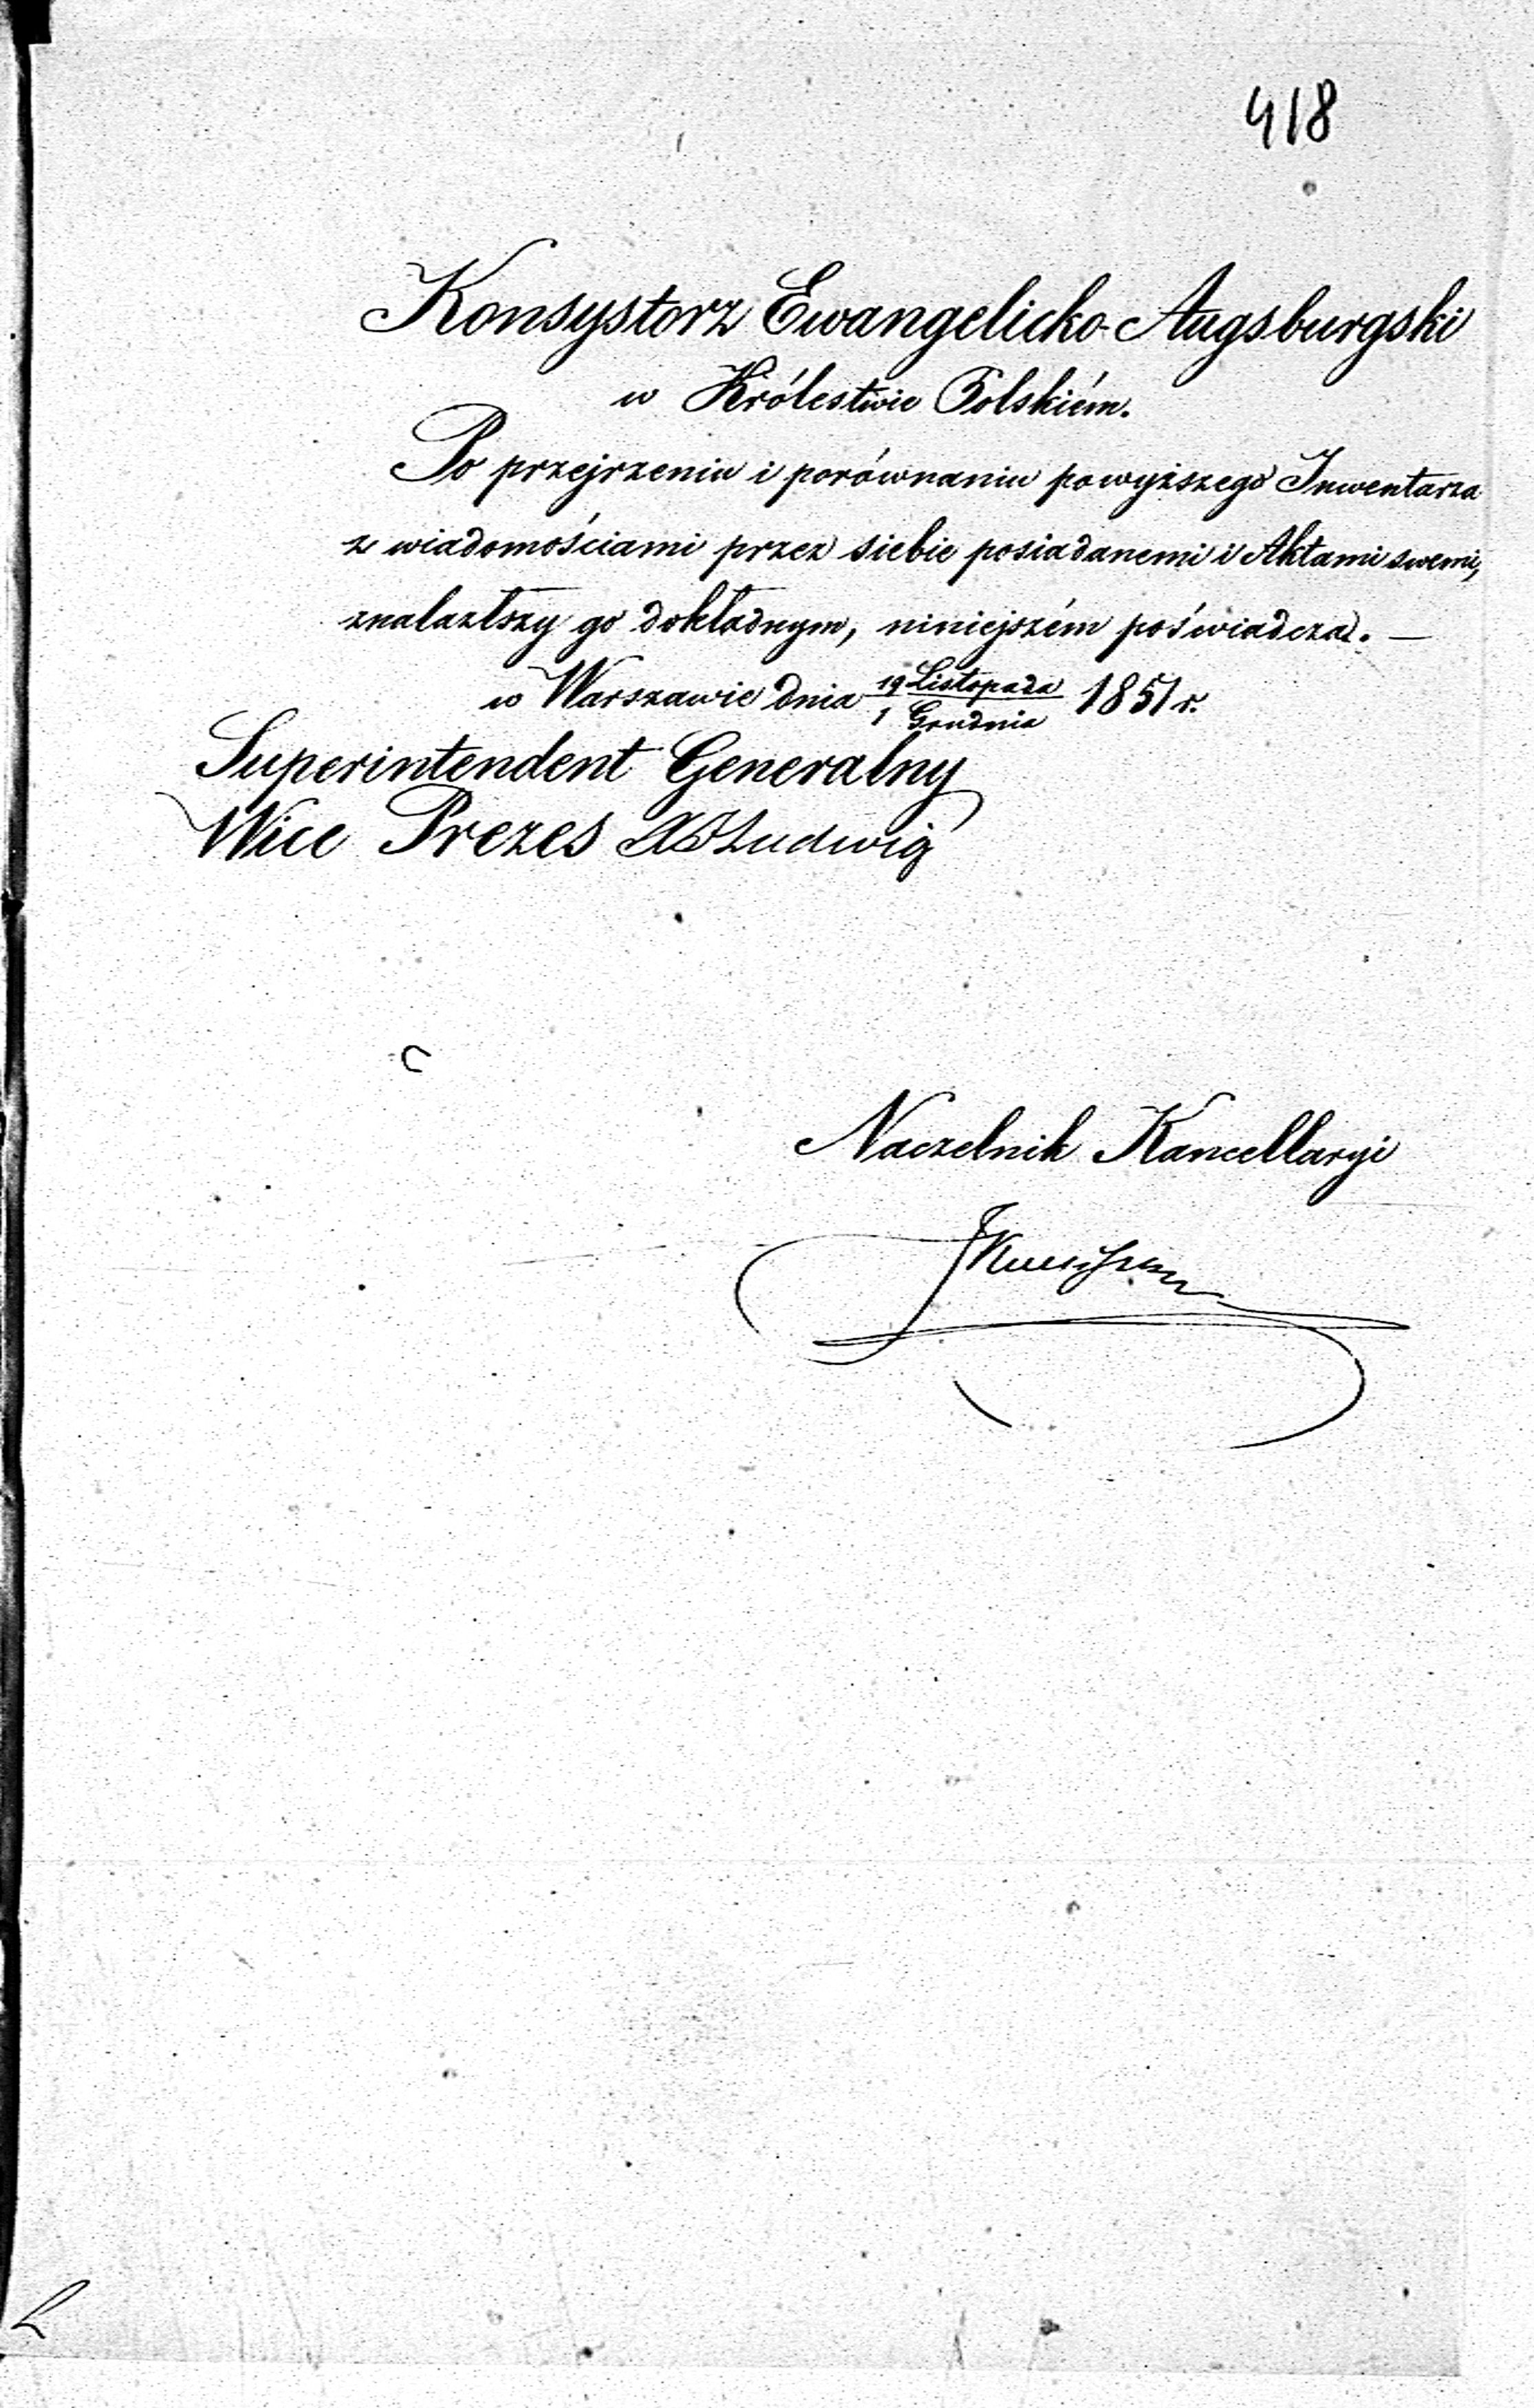 418
Konsystorz Ewangelicko-Augsburgski
w Królestwie Polskiém.
Po przejrzeniu i porównaniu powyższego Inwentarza
z wiadomościami przez siebie posiadanemi i Aktami swemi,
znalazłszy go dokładnym, niniejszém poświadcza. —
w Warszawie dnia 19 Listopada / 1 Grudnia 1851 r.
Superintendent Generalny
Wice Prezes Ludwig
Naczelnik Kancellaryi